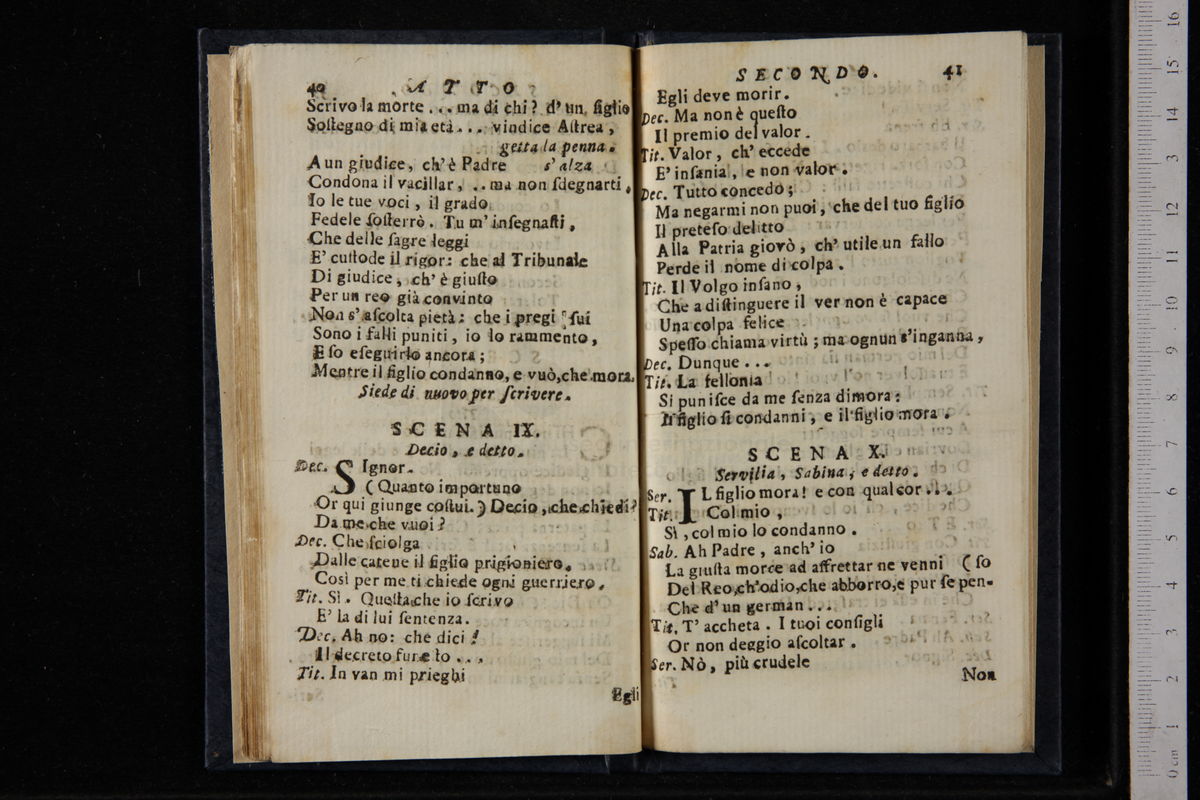 40 ATTO
Scrivo la morte ... ma di chi? d' un figlio
Soſtegno di mia età ... vindice Aſtrea,
getta la penna.
A un giudice, ch' è Padre s' alza
Condona il vacillar, .. ma non ſdegnarti,
Io le tue voci, il grado
Fedele ſoſterrò. Tu m' inſegnaſti,
Che delle ſagre leggi
E' cuſtode il rigor: che al Tribunale
Di giudice, ch' è giuſto
Per un reo già convinto
Non s' aſcolta pietà: che i pregi ſui
Sono i falli puniti, io lo rammento,
E ſo eſeguirlo ancora;
Mentre il figlio condanno, e vuò, che mora.
Siede di nuovo per ſcrivere.
SCENA IX.
Decio, e detto.
Dec. SIgnor.
( Quanto importuno
Or qui giunge coſtui. ) Decio, che chiedi?
Da me che vuoi?
Dec. Che ſciolga
Dalle catene il figlio prigioniero,
Così per me ti chiede ogni guerriero.
Tit. Sì. Queſta che io ſcrivo
E' la di lui ſentenza.
Dec. Ah no: che dici!
Il decreto funeſto ...
Tit. In van mi prieghi
Egli
SECONDO. 41
Egli deve morir.
Dec. Ma non è queſto
Il premio del valor.
Tit. Valor, ch' eccede
E' inſania, e non valor.
Dec. Tutto concedo;
Ma negarmi non puoi, che del tuo figlio
Il preteſo delitto
Alla Patria giovò, ch' utile un fallo
Perde il nome di colpa.
Tit. Il Volgo inſano,
Che a diſtinguere il ver non è capace
Una colpa felice
Speſſo chiama virtù; ma ognun s' inganna,
Dec. Dunque ...
Tit. La fellonia
Si puniſce da me ſenza dimora:
Il figlio ſi condanni, e il figlio mora.
SCENA X.
Servilia, Sabina, e detto.
Ser. IL figlio mora! e con qual cor ...
Tit. Col mio,
Sì, col mio lo condanno.
Sab. Ah Padre, anch' io
La giuſta morte ad affrettar ne venni ( ſo
Del Reo, ch' odio, che abborro, e pur ſe pen-
Che d' un german ...
Tit. T' accheta. I tuoi conſigli
Or non deggio aſcoltar.
Ser. Nò, più crudele
Non
0 cm 1 2 3 4 5 6 7 8 9 10 11 12 13 14 15 16